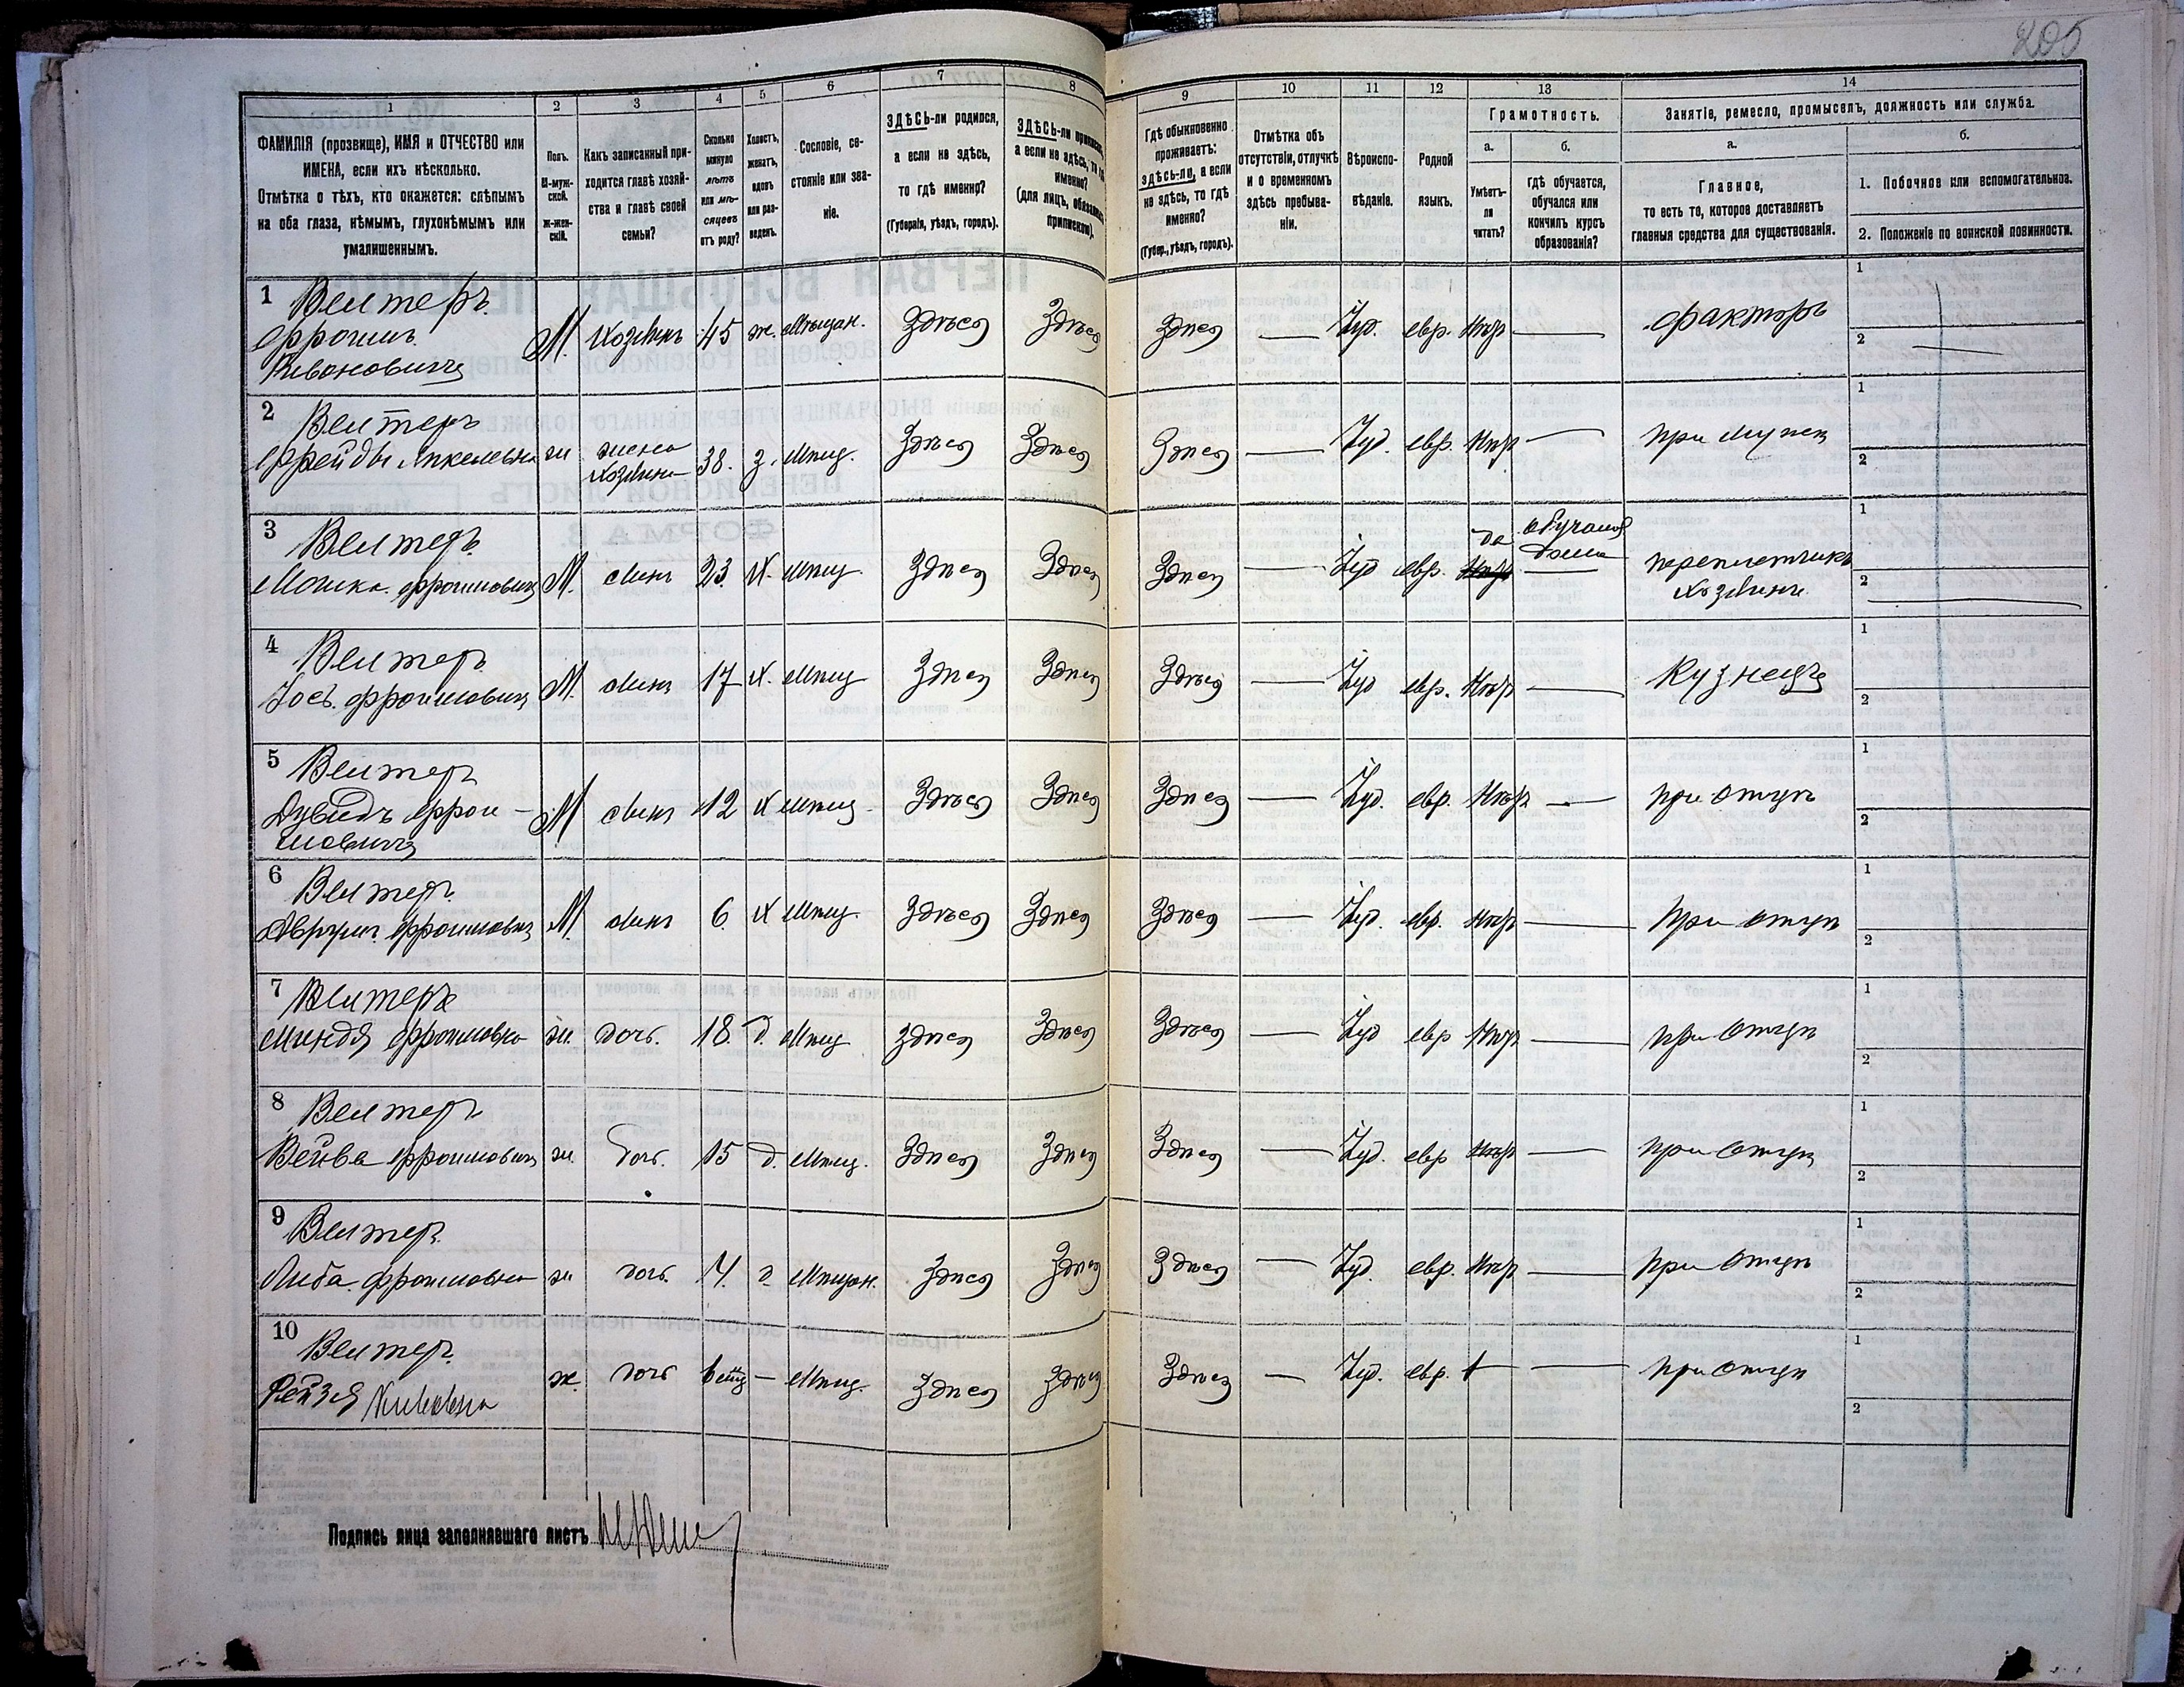 205
1
2
3
4
5
6
7
8
9
10
11
12
13
14
ФАМИЛІЯ (прозвище), ИМЯ и ОТЧЕСТВО или
ИМЕНА, если ихъ нѣсколько.
Отмѣтка о тѣхъ, кто окажется: слѣпымъ
на оба глаза, нѣмымъ, глухонѣмымъ или
умалишеннымъ.
Полъ.
М-муж-
ской.
ж-жен-
скій.
Какъ записанный при-
ходится главѣ хозяй-
ства и главѣ своей
семьи?
Сколько
минуло
лѣтъ
или мѣ-
сяцевъ
отъ роду?
Холостъ,
женатъ,
вдовъ
или раз-
веденъ.
Сословіе, со-
стояніе или зва-
ніе.
ЗДѢСЬ-ли родился,
а если не здѣсь,
то гдѣ именно?
(Губернія, уѣздъ, городъ).
ЗДѢСЬ-ли приписанъ,
а если не здѣсь, то гдѣ
именно?
(для лицъ, обязанныхъ
припискою).
Гдѣ обыкновенно
проживаетъ:
здѣсь-ли, а если
не здѣсь, то гдѣ
именно?
(Губер., уѣздъ, городъ).
Отмѣтка объ
отсутствіи, отлучкѣ
и о временномъ
здѣсь пребыва-
ніи.
Вѣроиспо-
вѣданіе.
Родной
языкъ.
Грамотность.
а.
Умѣетъ-
ли
читать?
б.
гдѣ обучается,
обучался или
кончилъ курсъ
образованія?
Занятіе, ремесло, промыселъ, должность или служба.
а.
Главное,
то есть то, которое доставляетъ
главныя средства для существованія.
б.
1. Побочное или вспомогательное.
2. Положеніе по воинской повинности.
1 Велтеръ
Фроимъ
М. Хозяинъ 45 ж. Мѣщан. Здѣсь Здѣсь Здѣсь — Іуд. евр. Нѣтъ — факторъ
1
2
2 Велтеръ
Фрейды
ж жена
хозяина 38. з. Мѣщ. Здѣсь Здѣсь Здѣсь — Іуд. евр. Нѣтъ — при мужѣ
1
2
3 Велтеръ
Мошка Фроимовичъ М. сынъ 23. Х. Мѣщ. Здѣсь Здѣсь Здѣсь — Іуд евр. да Нѣтъ обучался
дома переплетчикъ
хозяинъ
1
2
4 Велтеръ
Іосъ Фроимовичъ М. сынъ 17 Х. Мѣщ Здѣсь Здѣсь Здѣсь — Іуд евр. Нѣтъ — Кузнецъ
1
2
5 Велтеръ
Дувидъ Фрои-
мовичъ
М сынъ 12 Х Мѣщ. Здѣсь Здѣсь Здѣсь — Іуд. евр. Нѣтъ — при отцѣ
1
2
6 Велтеръ
Аврумъ Фроимовичъ М. сынъ 6. Х Мѣщ. Здѣсь Здѣсь Здѣсь — Іуд. евр. Нѣтъ — при отцѣ
1
2
7 Велтеръ
Миндя Фроимовна ж. дочь. 18. д. Мѣщ Здѣсь Здѣсь Здѣсь — Іуд евр Нѣтъ — при отцѣ
1
2
8 Велтеръ
Вейва ж дочь. 15 д. Мѣщ. Здѣсь Здѣсь Здѣсь — Іуд. евр Нѣтъ — при отцѣ
1
2
9 Велтеръ
Либа Фроимовна ж дочь. д Мѣщан. Здѣсь Здѣсь Здѣсь — Іуд. евр. Нѣтъ — при отцѣ
1
2
10 Велтеръ
Рейзя
ж. дочь — Мѣщ. Здѣсь Здѣсь Здѣсь — Іуд. евр. — при отцѣ
1
2
Подпись лица заполнявшаго листъ